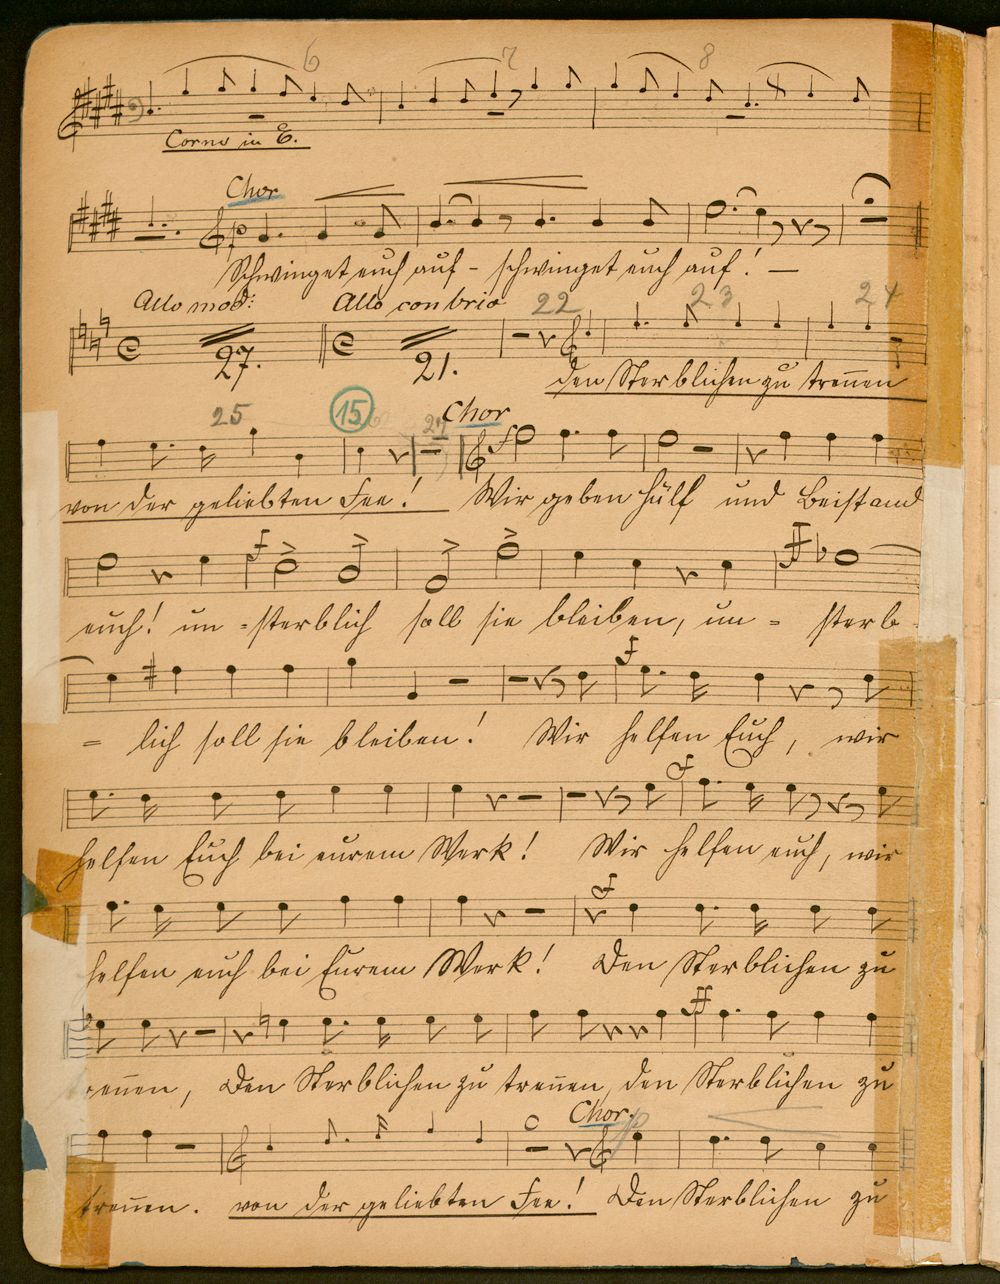 6 7 8
Corno in E.
Chor
p
Schwinget euch auf - schwinget euch auf! —
Allo mod: Allo con brio 22 23 24
27. 21.
den Sterblichen zu trennen
25 15 27 Chor
f
von der geliebten Fee! Wir geben Hülf und Beistand
f ff
euch! un - sterblich soll sie bleiben, un - sterb-
f
= lich soll sie bleiben! Wir helfen Euch, wir
f
helfen Euch bei eurem Werk! Wir helfen euch, wir
f
helfen euch bei Eurem Werk! Den Sterblichen zu
ff
trennen, Den Sterblichen zu trennen, den Sterblichen zu
Chor.
p
trennen. von der geliebten Fee! Den Sterblichen zu